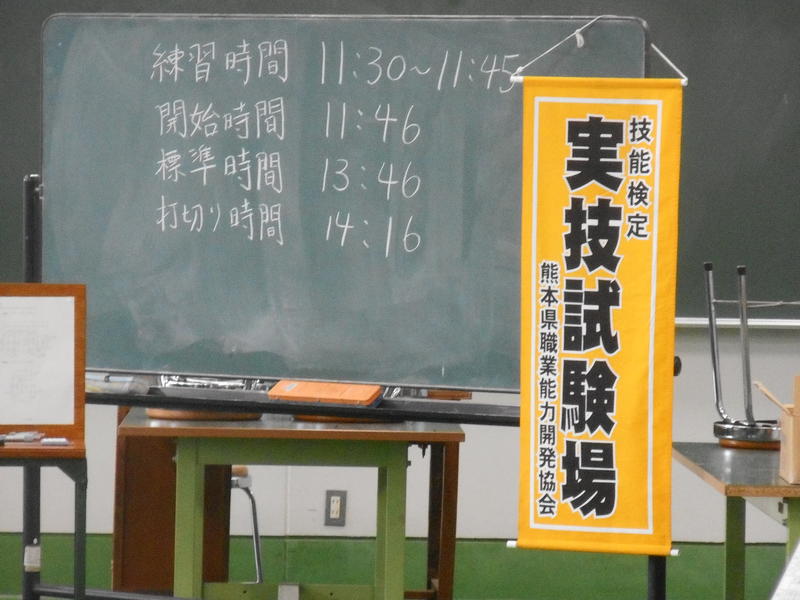 練習時間 11:30~11:45
開始時間 11:46
標準時間 13:46
打切り時間 14:16
技能検定
実技試験場
熊本県職業能力開発協会